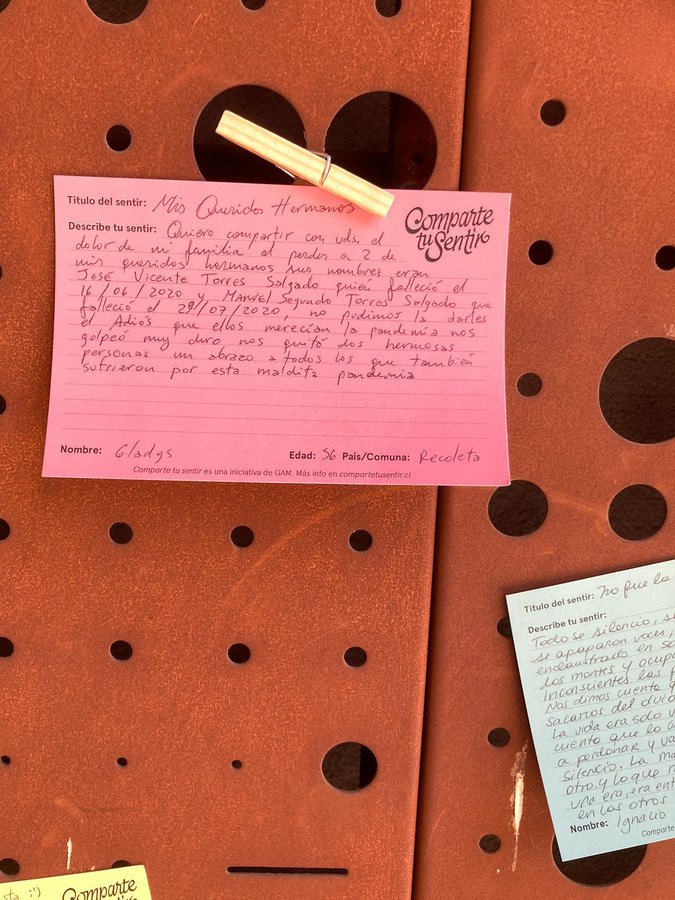 Título del sentir: Mis Queridos Hermanos
Comparte
tu Sentir
Describe tu sentir: Quiero compartir con uds. el
dolor de mi familia al perder a 2 de
mis queridos hermanos sus nombres eran
José Vicente Torres Salgado quien falleció el
16/06/2020 y Manuel Segundo Torres Salgado que
falleció el 29/07/2020, no pudimos la darles
el Adiós que ellos merecían la pandemia nos
golpeó muy duro nos quitó dos hermosas
personas un abrazo a todos los que también
sufrieron por esta maldita pandemia
Nombre: Gladys Edad: 56 País/Comuna: Recoleta
Comparte tu sentir es una iniciativa de GAM. Más info en compartetusentir.cl
Título del sentir: No fue la
Describe tu sentir:
Todo se silencio, se
se apagaron voces,
enclaustrado en
los montes y ocup
inconscientes las
Nos dimos cuenta q
sacarlos del
La vida era solo u
cuento que lo
a perdonar y va
silencio. La ma
otro. y lo que
una era, era ent
en los otros
Nombre: Ignacio
Comparte
:')
Comparte